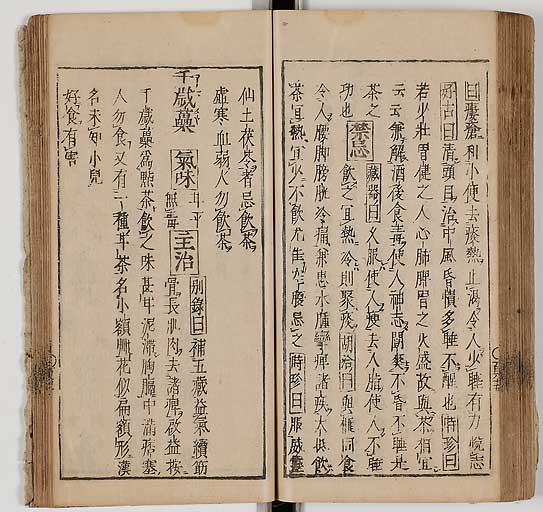 曰瘻瘡利小便去痰熱止渴令人少睡有力悅志
好古曰清頭目治中風昏憒多睡不醒也時珍曰
若少壯胃健之人心肺脾胃之火盛故與茶相宜
云云兼解酒後食毒使人神志闓爽不昏不睡是
茶之
功也 禁忌 藏器曰久服使人瘦去人脂使人不睡
飲之宜熱冷則聚痰胡洽曰與榧同食
令人腰脚膀胱冷痛兼患水腫攣痺諸疾大抵飲
茶宜熱宜少不飲尤佳空腹忌之時珍曰服威靈
仙土茯苓者忌飲茶
虛寒血弱人勿飲茶
千歲虆 氣味 甘平無毒 主治 別錄曰補五藏益氣續筋
骨長肌肉去諸痺
千歲虆為點茶飲之味甚甘泥滯胸膈中滿痞塞
人勿食又有一種甘茶名小額 花似扁額形
名未知小兒
好食有害